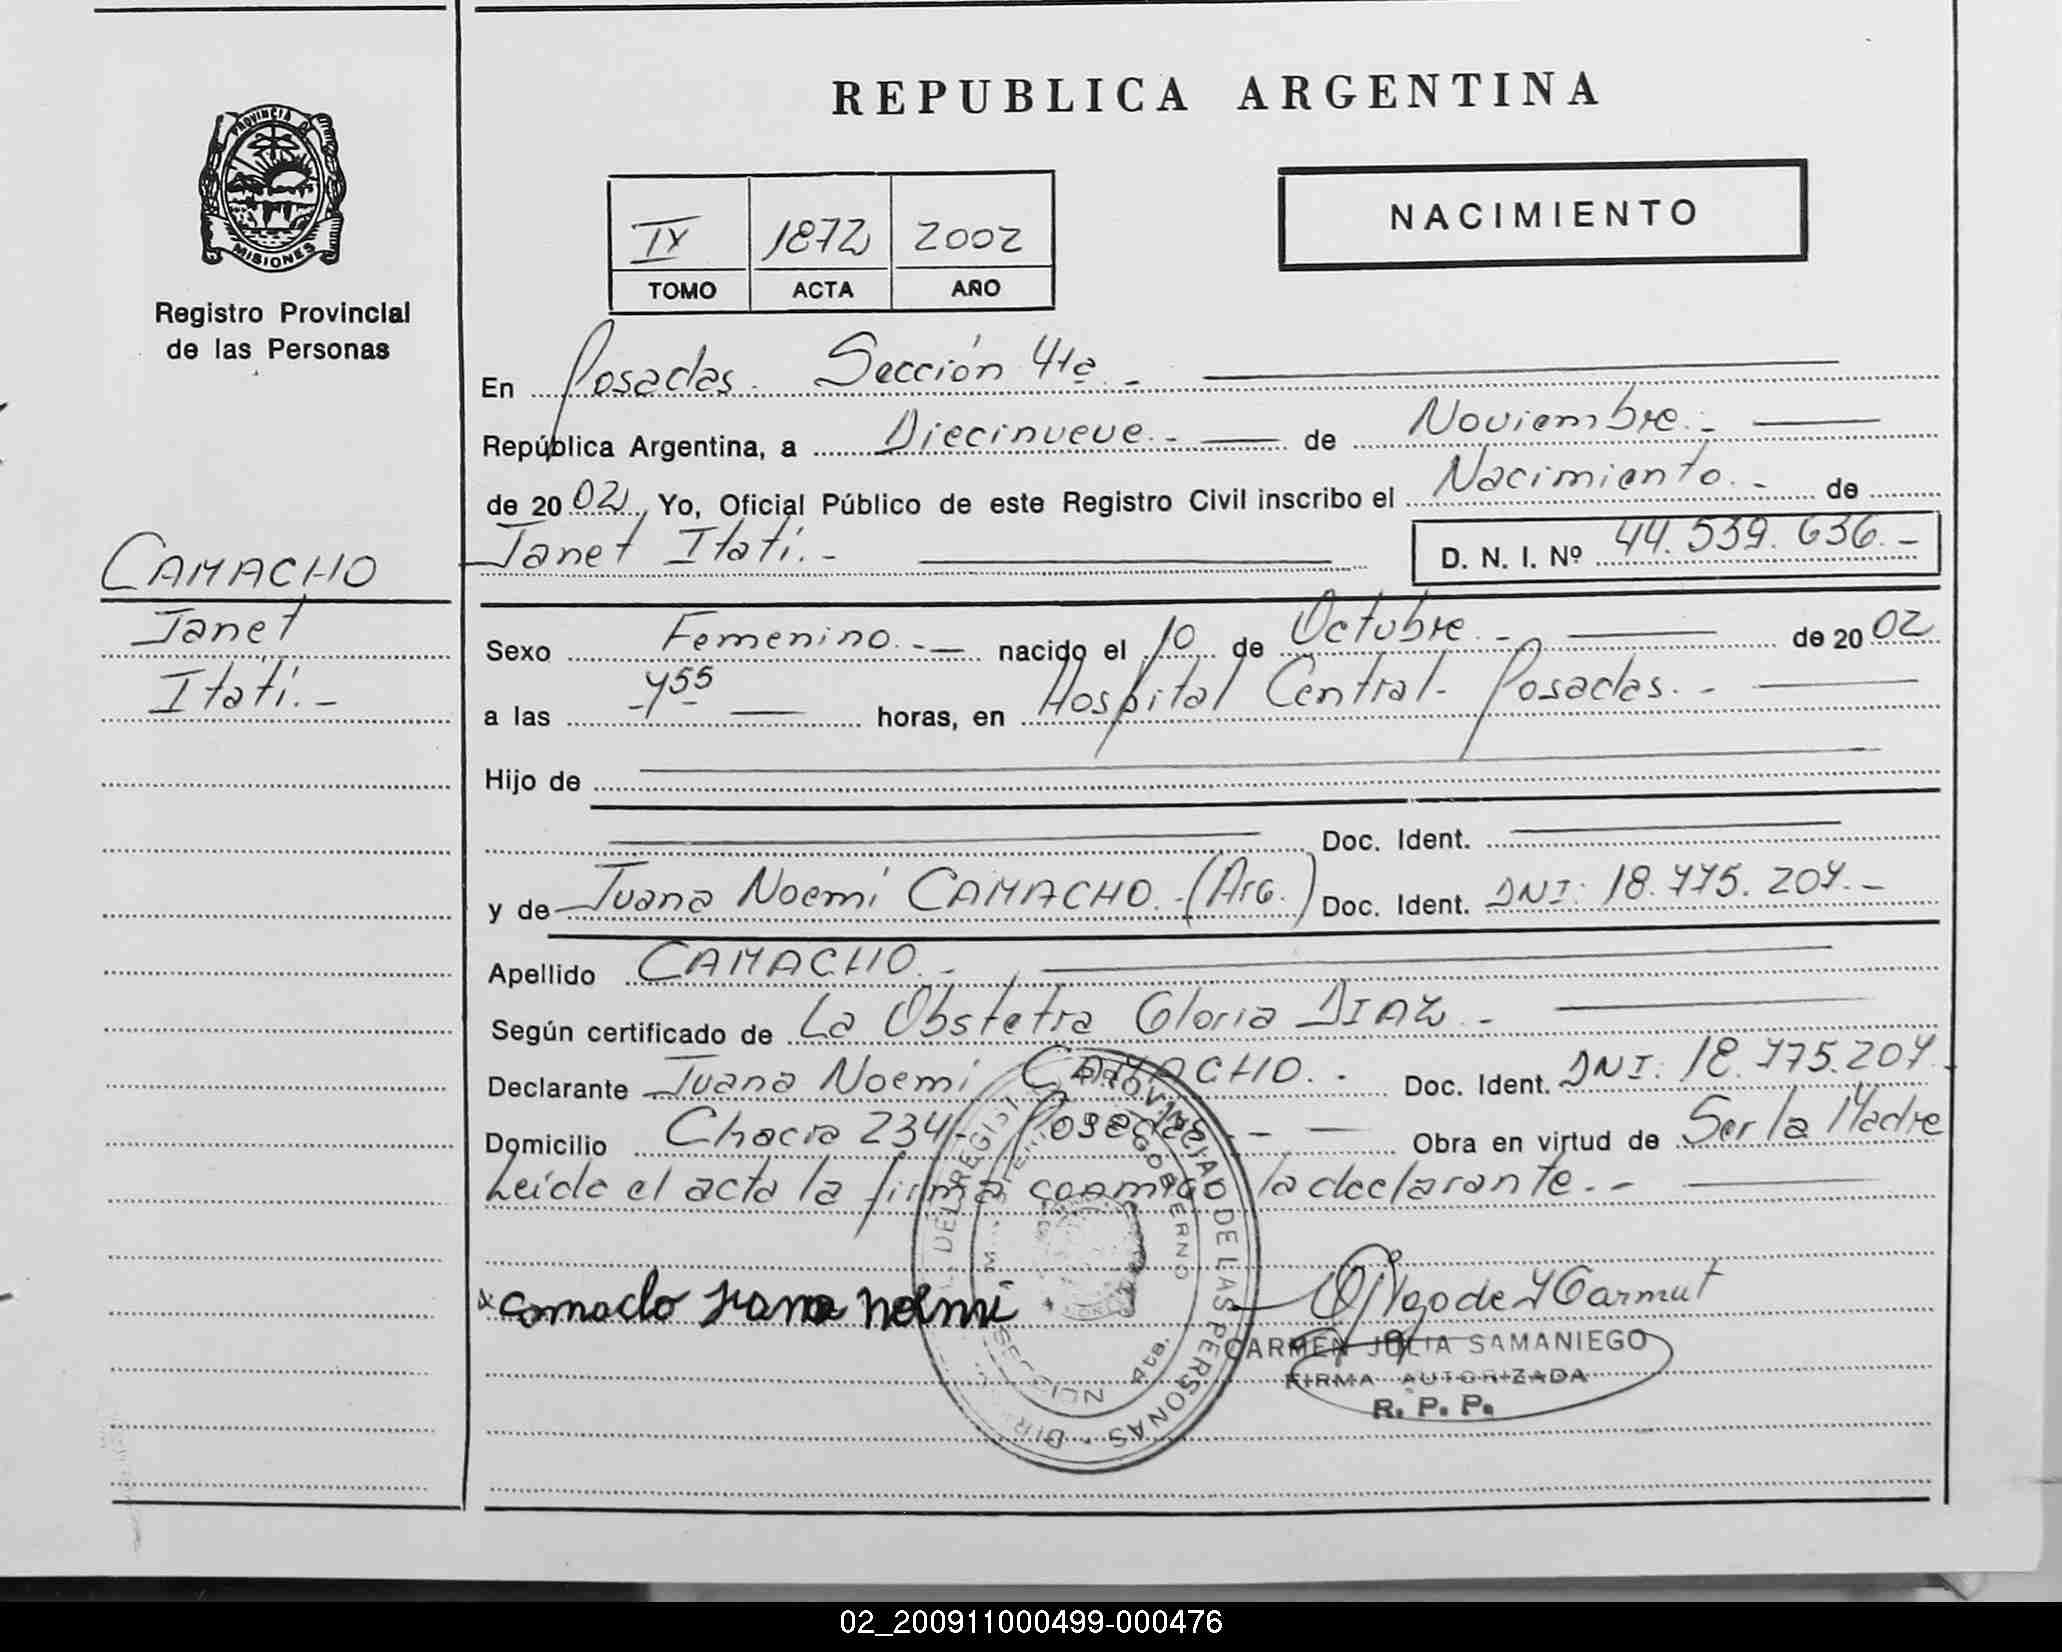 REPUBLICA ARGENTINA
PROVINCIA DE
MISIONES
Registro Provincial
de las Personas
NACIMIENTO
IX 1872 2002
TOMO ACTA AÑO
En Posadas. Sección 4ta. -
República Argentina, a Diecinueve. - de Noviembre. -
de 2002, Yo, Oficial Público de este Registro Civil inscribo el Nacimiento. - de
Janet Itatí. - D. N. I. Nº 44.539.636. -
CAMACHO
Janet
Itatí. -
Sexo Femenino. - nacido el 10 de Octubre. - de 2002
a las -755- horas, en Hospital Central - Posadas. -
Hijo de
Doc. Ident.
y de Juana Noemí CAMACHO. - (Arg.) Doc. Ident. DNI: 18.775.207. -
Apellido CAMACHO. -
Según certificado de La Obstetra Gloria DIAZ. -
Declarante Juana Noemí CAMACHO. - Doc. Ident. DNI: 18.775.207. -
Domicilio Chacra 234 - Posadas. - Obra en virtud de Ser la Madre
Leída el acta la firma conmigo la declarante. -
DEL REGISTRO PROVINCIAL DE LAS PERSONAS
DE GOBIERNO
SECCION 4ta.
CARMEN JULIA SAMANIEGO
FIRMA AUTORIZADA
R. P. P.
02_200911000499-000476